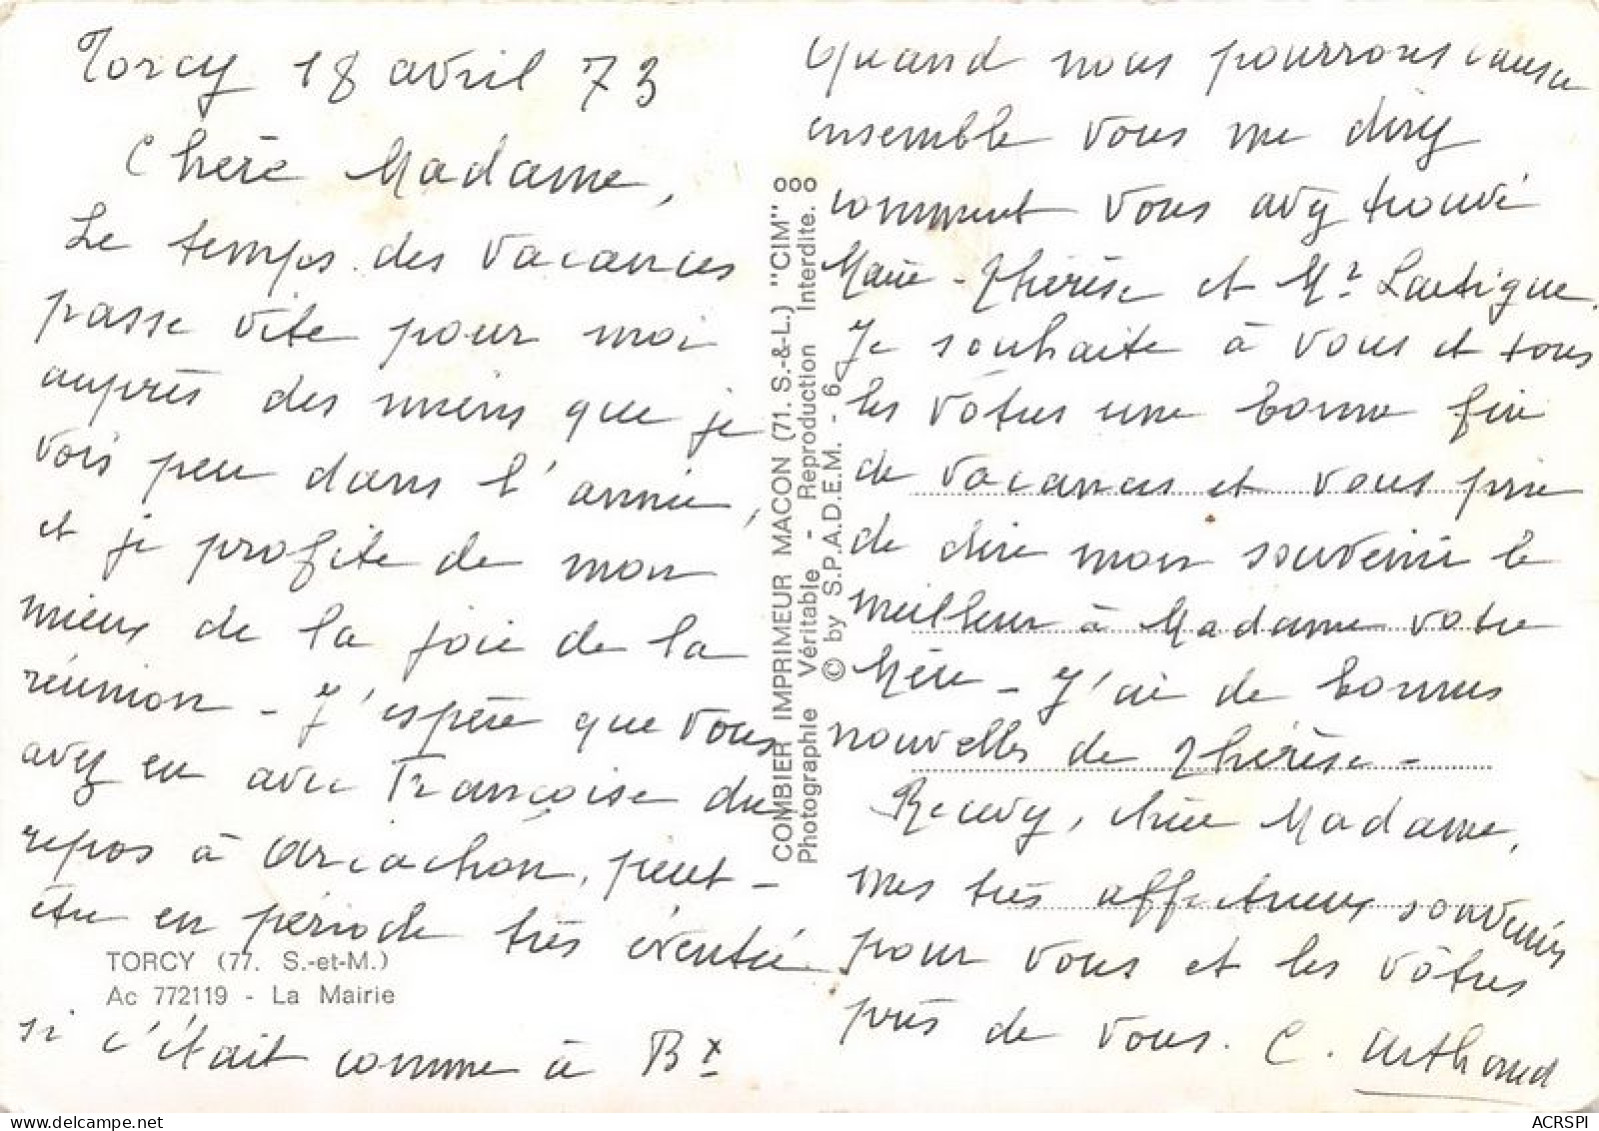 Torcy 18 avril 73
Chère Madame,
Le temps des vacances
passe vite pour moi
auprès des miens que je
vois peu dans l'année,
et je profite de mon
mieux de la joie de la
réunion - J'espère que vous
avez eu avec Françoise du
repos à Arcachon, peut-
être en période très éventée
si c'était comme à Bx
TORCY (77. S.-et-M.)
Ac 772119 - La Mairie
COMBIER IMPRIMEUR MACON (71. S.-&-L.) "CIM" ooo
Photographie Véritable - Reproduction Interdite.
© by S.P.A.D.E.M. - 6
Quand nous pourrons causer
ensemble vous me direz
comment vous avez trouvé
Marie-Thérèse et Mr Lartigue.
Je souhaite à vous et tous
les vôtres une bonne fin
de vacances et vous prie
de dire mon souvenir le
meilleur à Madame votre
Mère - J'ai de bonnes
nouvelles de Thérèse -
Recevez, chère Madame,
mes très affectueux souvenirs
pour vous et les vôtres
près de vous. C. Arthaud
ACRSPI